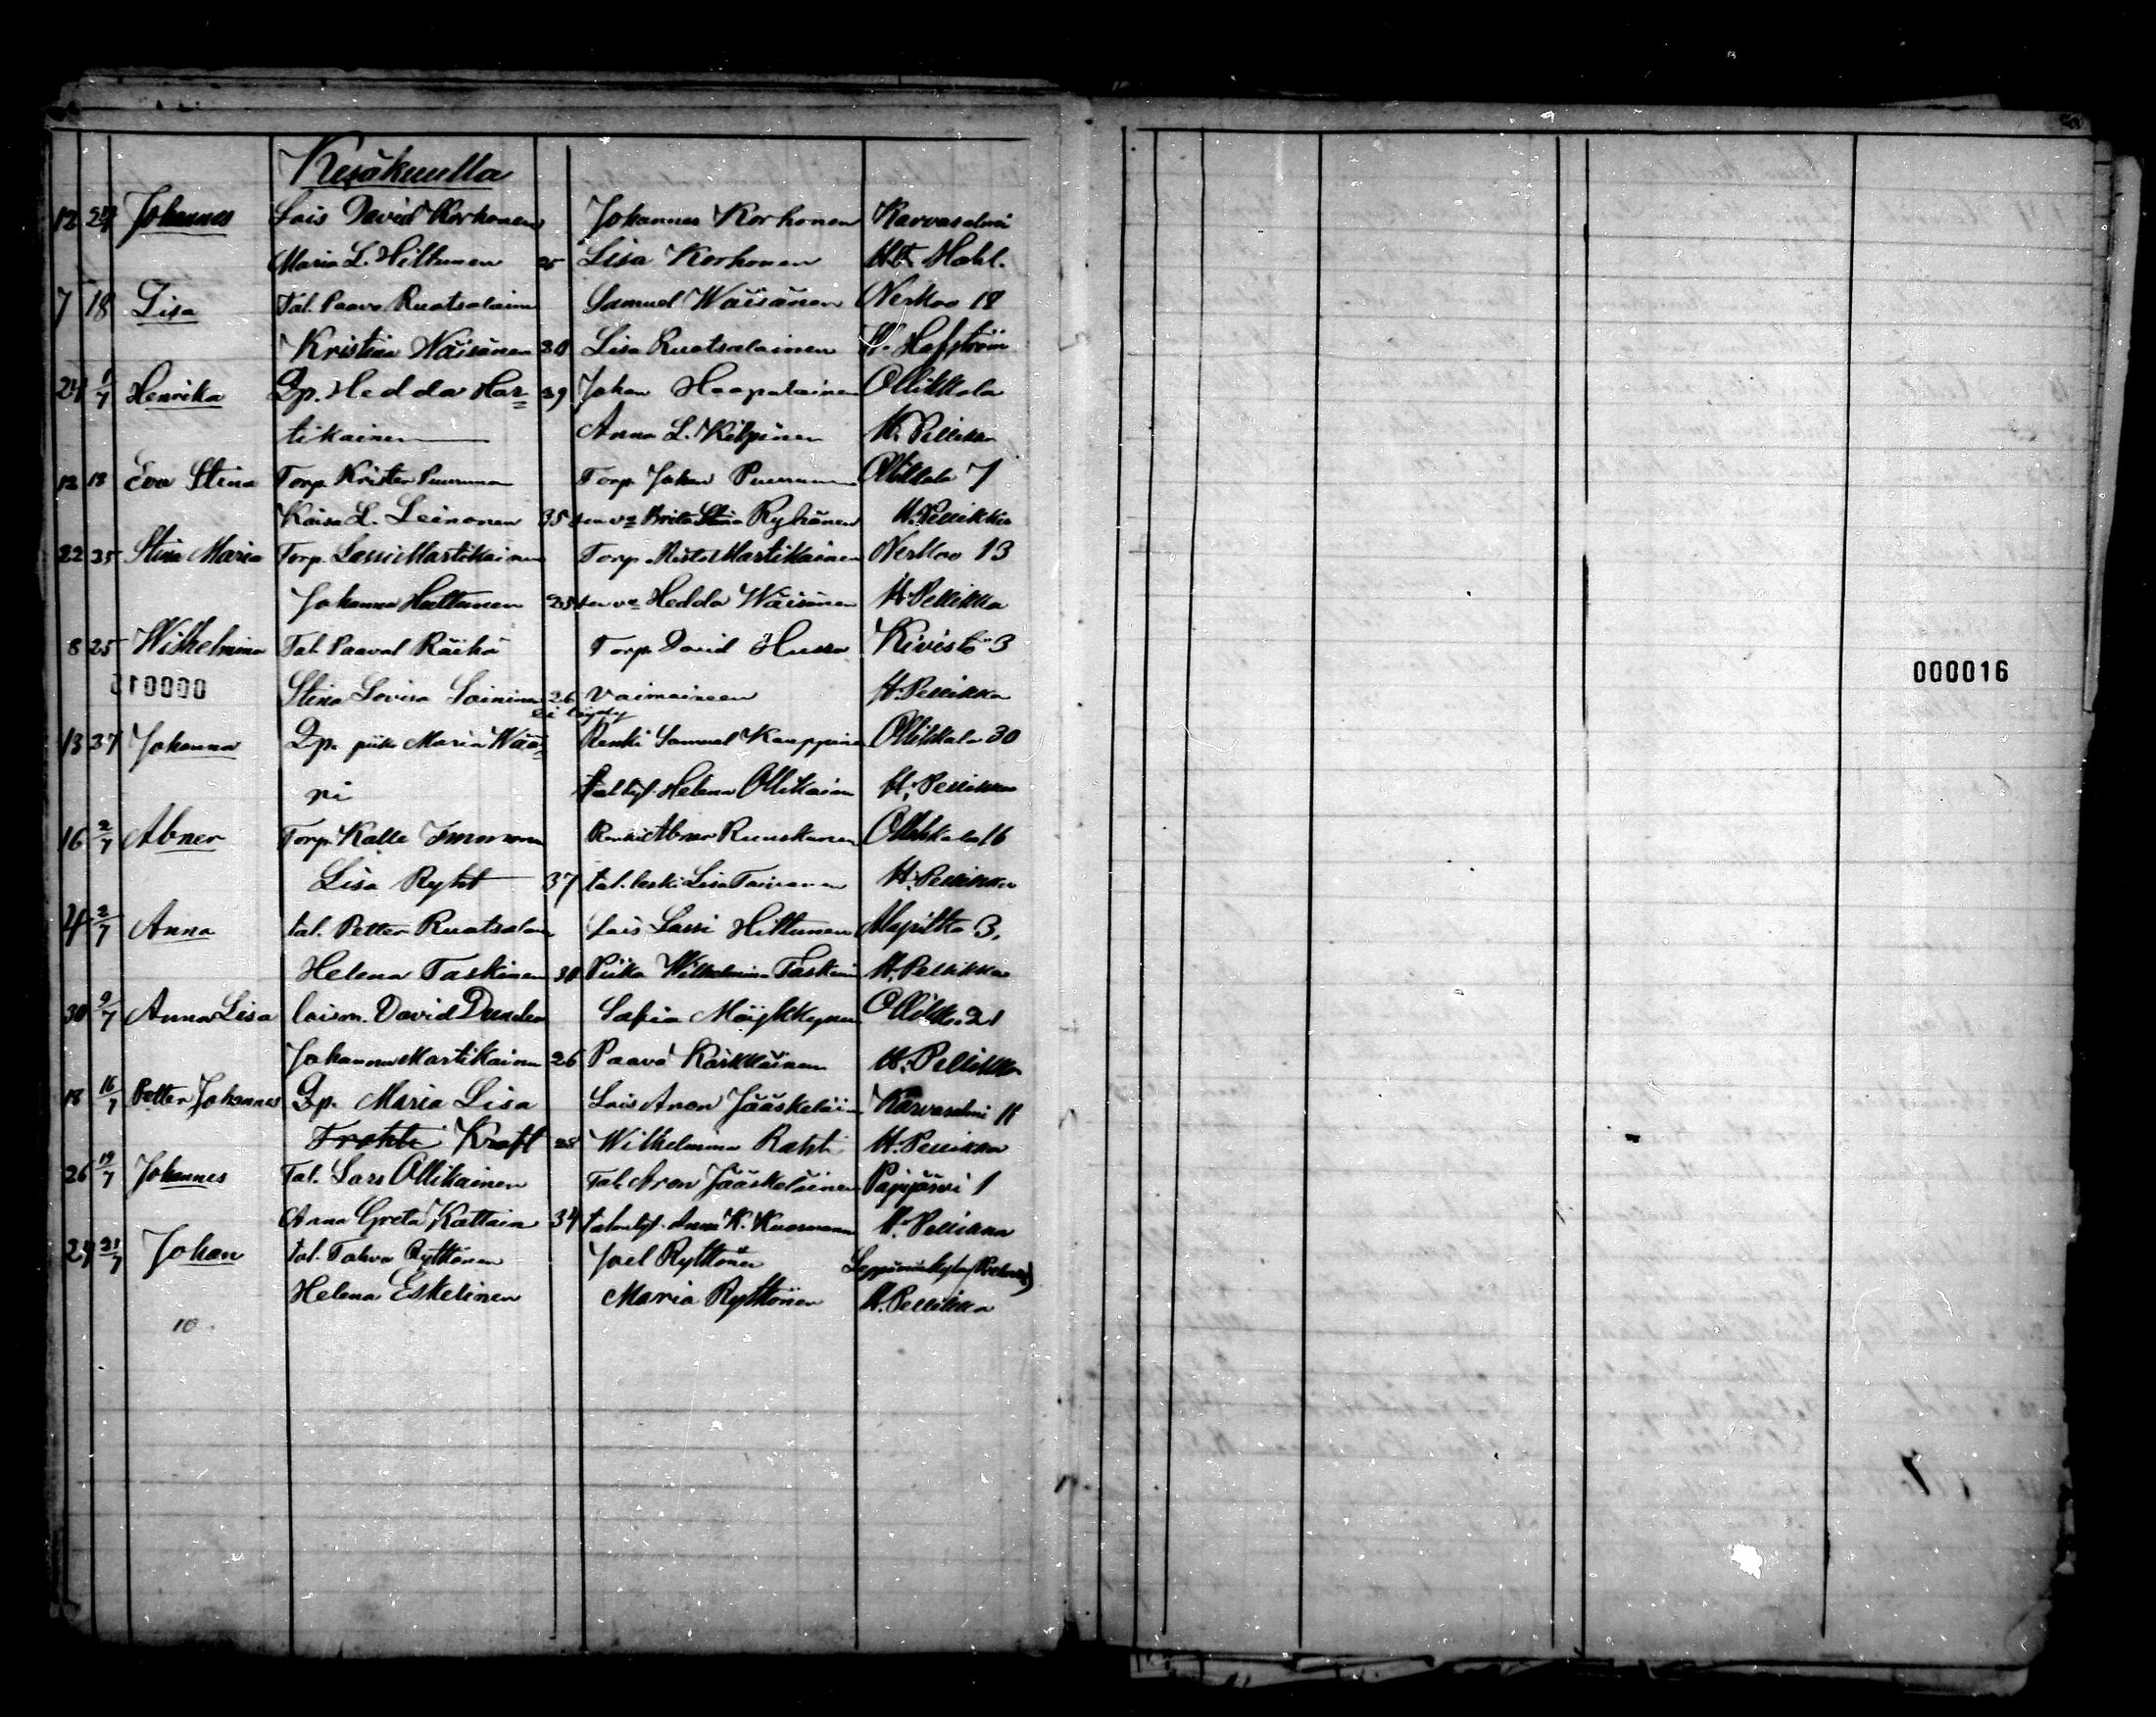 Kesäkuulla
12 24 Johannes Lois David Korhonen Johannes Korhonen Karvasalmi
Maria L. Hiltunen 25 Lisa Korhonen Hahl.
7 18 Lisa Tal. Paavo Ruotsalainen Samuel Wäisänen Nerkoo 18
Kristina Wäisänen 20 Lisa Ruotsalainen H. Hafström
24 1/7 Henrika Qp. Hedda Har= 39 Johan Haapalainen Ollikkala
tikainen Anna L. Kilpinen H. Pellikka
12 18 Eva Stina Torp. Krister Torp. Johan Ollikkala 7
Kaisa L. Leinonen 35 Brita Stina Ryhänen H. Pellikka
22 25 Stina Maria Torp. Lassi Martikainen Torp. Martikainen Nerkoo 13
Johanna 25 Hedda Wäisänen H. Pellikka
8 25 Wilhelmina Tal. Paaval Räihä Torp. David Husso Kivistö 3
Stina Lovisa Soininen 26 vaimoineen H. Pellikka
000015
000016
13 27 Johanna Qp. piika Maria Wää= Renki Samuel Kauppinen Ollikkala 30
ri Helena Ollikainen H. Pellikka
16 2/7 Abner Torp. Kalle Immonen Renki Abner Ruuskanen Ollikkala 16
Lisa Ryht 37 tal. leski Lisa Toivanen H. Pellikka
4 2/7 Anna tal. Petter Ruotsalain Lois Lassi Hiltunen Alapitkä 3.
Helena Taskinen 30 Piika Wilhelmina Taskinen H. Pellikka
30 9/7 Anna Lisa loism. David Dunder Sofia Möykkynen Ollikka. 21
Johanna Martikainen 26 Paavo Kärkkäinen H. Pellikka
18 16/7 Petter Johannes Qp. Maria Lisa Lois Aron Jääskeläin Karvasalmi 11
Krøft 28 Wilhelmina Rahti H. Pellikka
26 19/7 Johannes Tal. Lars Ollikainen Tal. Aron Jääskeläinen Pajujärvi 1
Anna Greta Kattain 34 Anna K. Kuosmanen H. Pellikka
24 21/7 Johan tal. Tahvo Rytkönen Joel Rytkönen
Helena Eskelinen Maria Rytkönen H. Pellikka
10